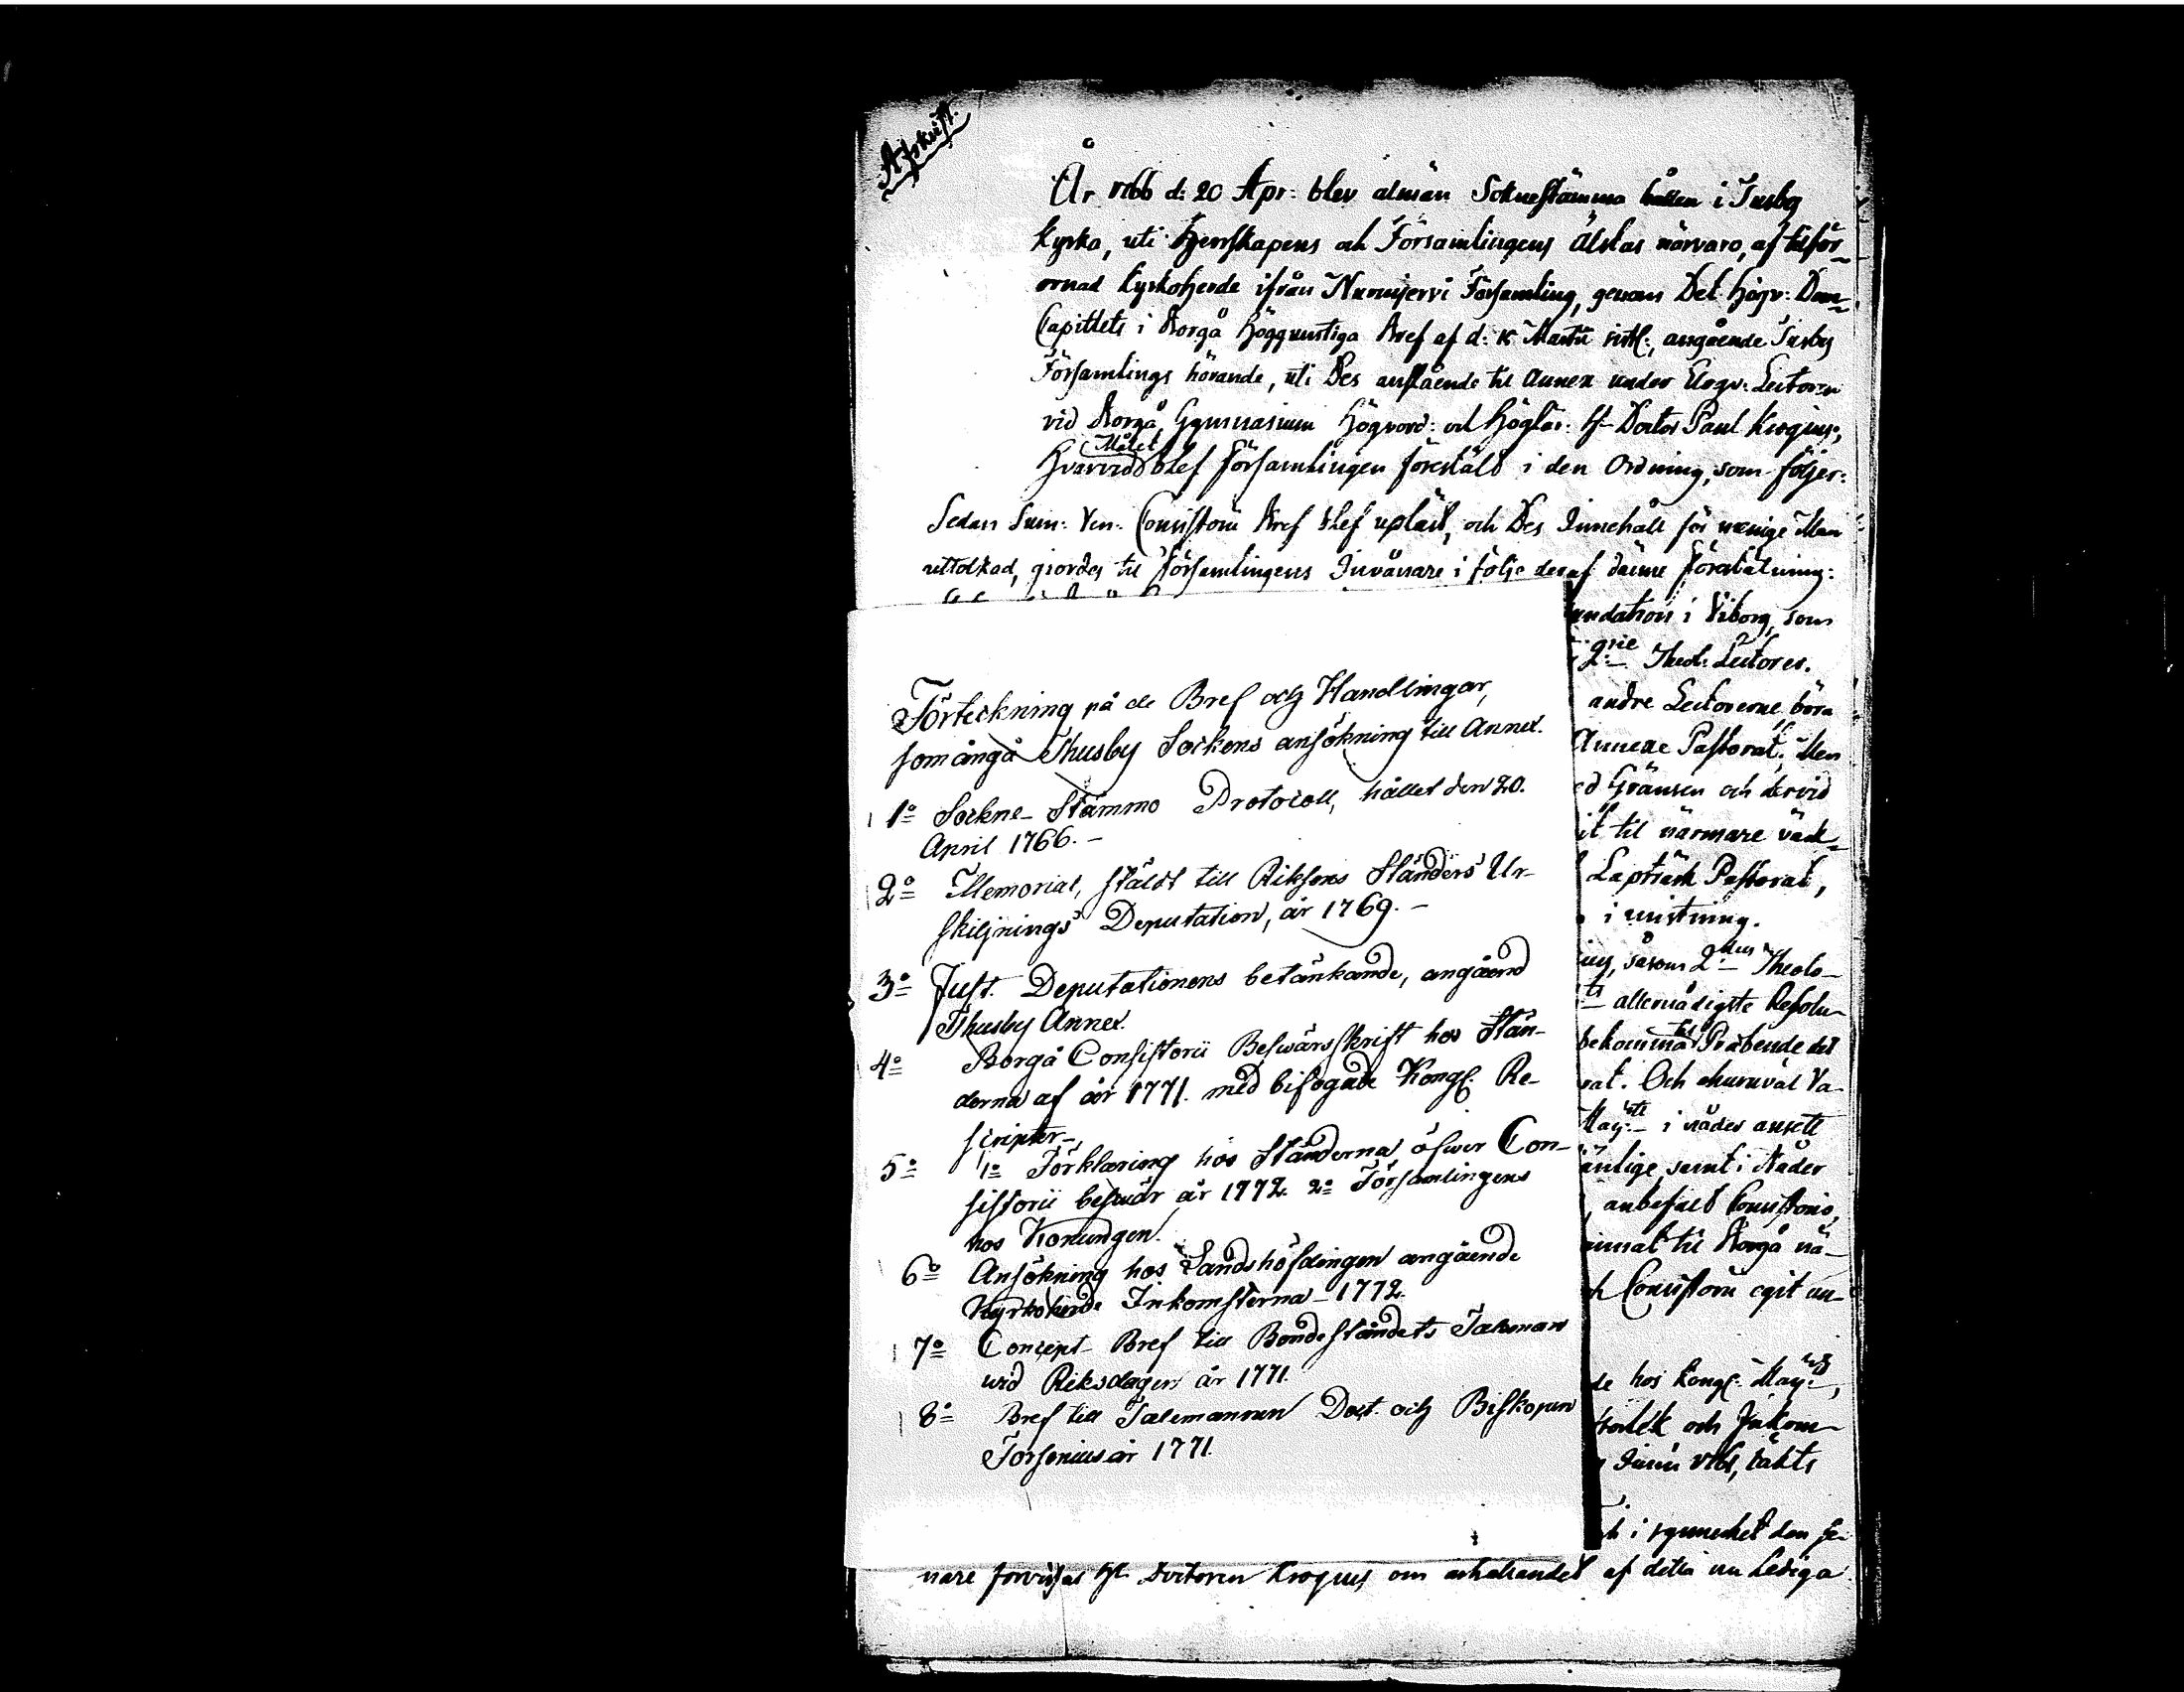 Afskrift.
År 1766 d: 20 Apr: blev alman Soknestämma hållen i Tusby
kyrka, uti Herrskapens och Församlingens Älstas närvaro, af tilför-
ornad kyrkoherde ifrån Nurmijervi Församling, genom Det Högv: Dom-
Capitlets i Borgå Höggunstiga Bref af d: Martii sistl:, angående Tusby
Församlings hörande, uti Des anstående til Annex under Lectoren
vid Borgå Gymnasium Högvord: och Höglär: Hr Doctor Paul Krogius,
Målet
Hvarvid blef Församlingen förestält i den Ordning, som följer:
Sedan Sum: Ven: Consistorii Bref blef upläst, och Des Innehåll för menige Man
uttolkad, giordes til Församlingens Invånare i följe deraf denne Föreställning:
undation i Viborg, som
2:ne Theol: Lectores.
andre Lectorerne böra
Annexe Pastorat, Men
ed Gränsen och dervid
it til närmare väck-
Lapträsk Pastorat,
i mistning.
såsom 2:dus Theolo-
ts allernådigste Resolu-
bekomma til Præbende det
rat. Och ehuruväl Va-
May:ts i nåder ansett
änlige samt i Nåder
anbefalt Consistorio,
til Borgå nä-
h Consistorii egit un-
de hos Kongl: May:ts,
och Inkom-
h i synnerhet den se-
nare förvissas Hr Doctoren Krogius om erhållandet af detta nu Lediga
Förteckning på de Bref och Handlingar,
som angå Thusby Sockens ansökning till Annex.
1o Sockne-Stämmo Protocoll, hållet den 20.
April 1766.-
2o Memorial, stäldt till Riksens Ständers Ur-
skiljnings Deputation, år 1769.-
3o Just. Deputationens betänkande, angåend
Thusby Annex.
4o Borgå Consistorii Beswärsskrift hos Stän-
derna af år 1771. med bifogade Kongl. Re-
scripter-
5o 1o Förklaring hos Ständerna öfwer Con-
sistorii beswär år 1772. 2o Församlingens
hos Konungen.
6o Ansökning hos Landshöfdingen angående
Kyrkoherde Inkomsterna-1772.
7o Concept Bref till Bondeståndets Taleman
wid Riksdagen år 1771.
8o Bref till Talemannen Doct. och Biskopen
Forsenius år 1771.